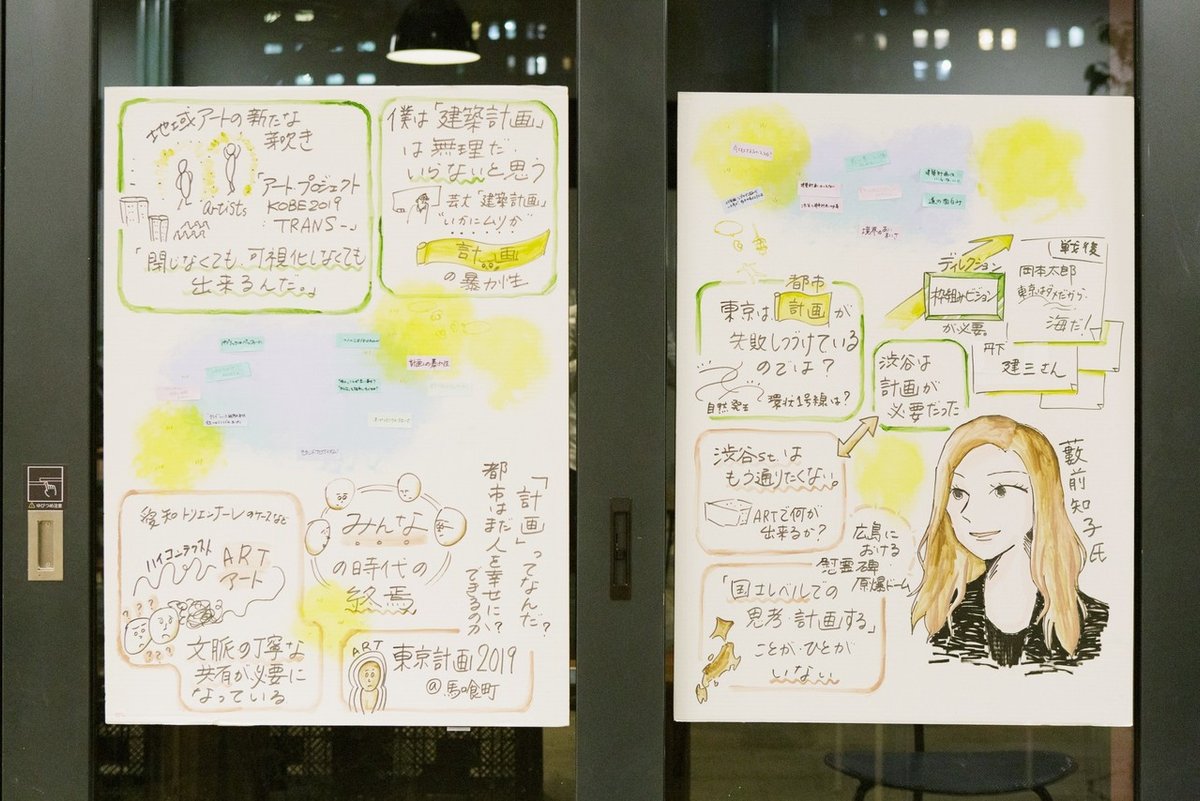 地域アートの新たな
芽吹き
artists
「アート・プロジェクト
KOBE2019
TRANS-」
「閉じなくても、可視化しなくても
出来るんだ。」
僕は「建築計画」
は無理だ・
いらないと思う
芸大「建築計画」
"いかにムリか"
計画
の暴力性
計画の暴力性
愛知トリエンナーレのケースなど
ハイコンテクスト
ART
アート
???
???
文脈の丁寧な
共有が必要に
なっている
みんな
の時代の
終焉
「計画」ってなんだ?
都市はまだ人を幸せに
できるのか?
ART
東京計画2019
@馬喰町
建築計画は
いらない
境界のあいまいさ
東京は
都市
計画が
失敗しつづけている
のでは?
自然発生
環状1号線は?
ディレクション
枠組みビジョン
が必要。
戦後
岡本太郎
東京はダメだから、
海だ!
丹下
健三さん
渋谷は
計画が
必要だった
渋谷st.は
もう通りたくない。
ARTで何が
出来るか?
広島に
おける
慰霊碑
原爆ドーム
「国土レベルでの
思考・計画する」
ことが・ひとが
いない
藪前知子氏
ゆびづめ注意